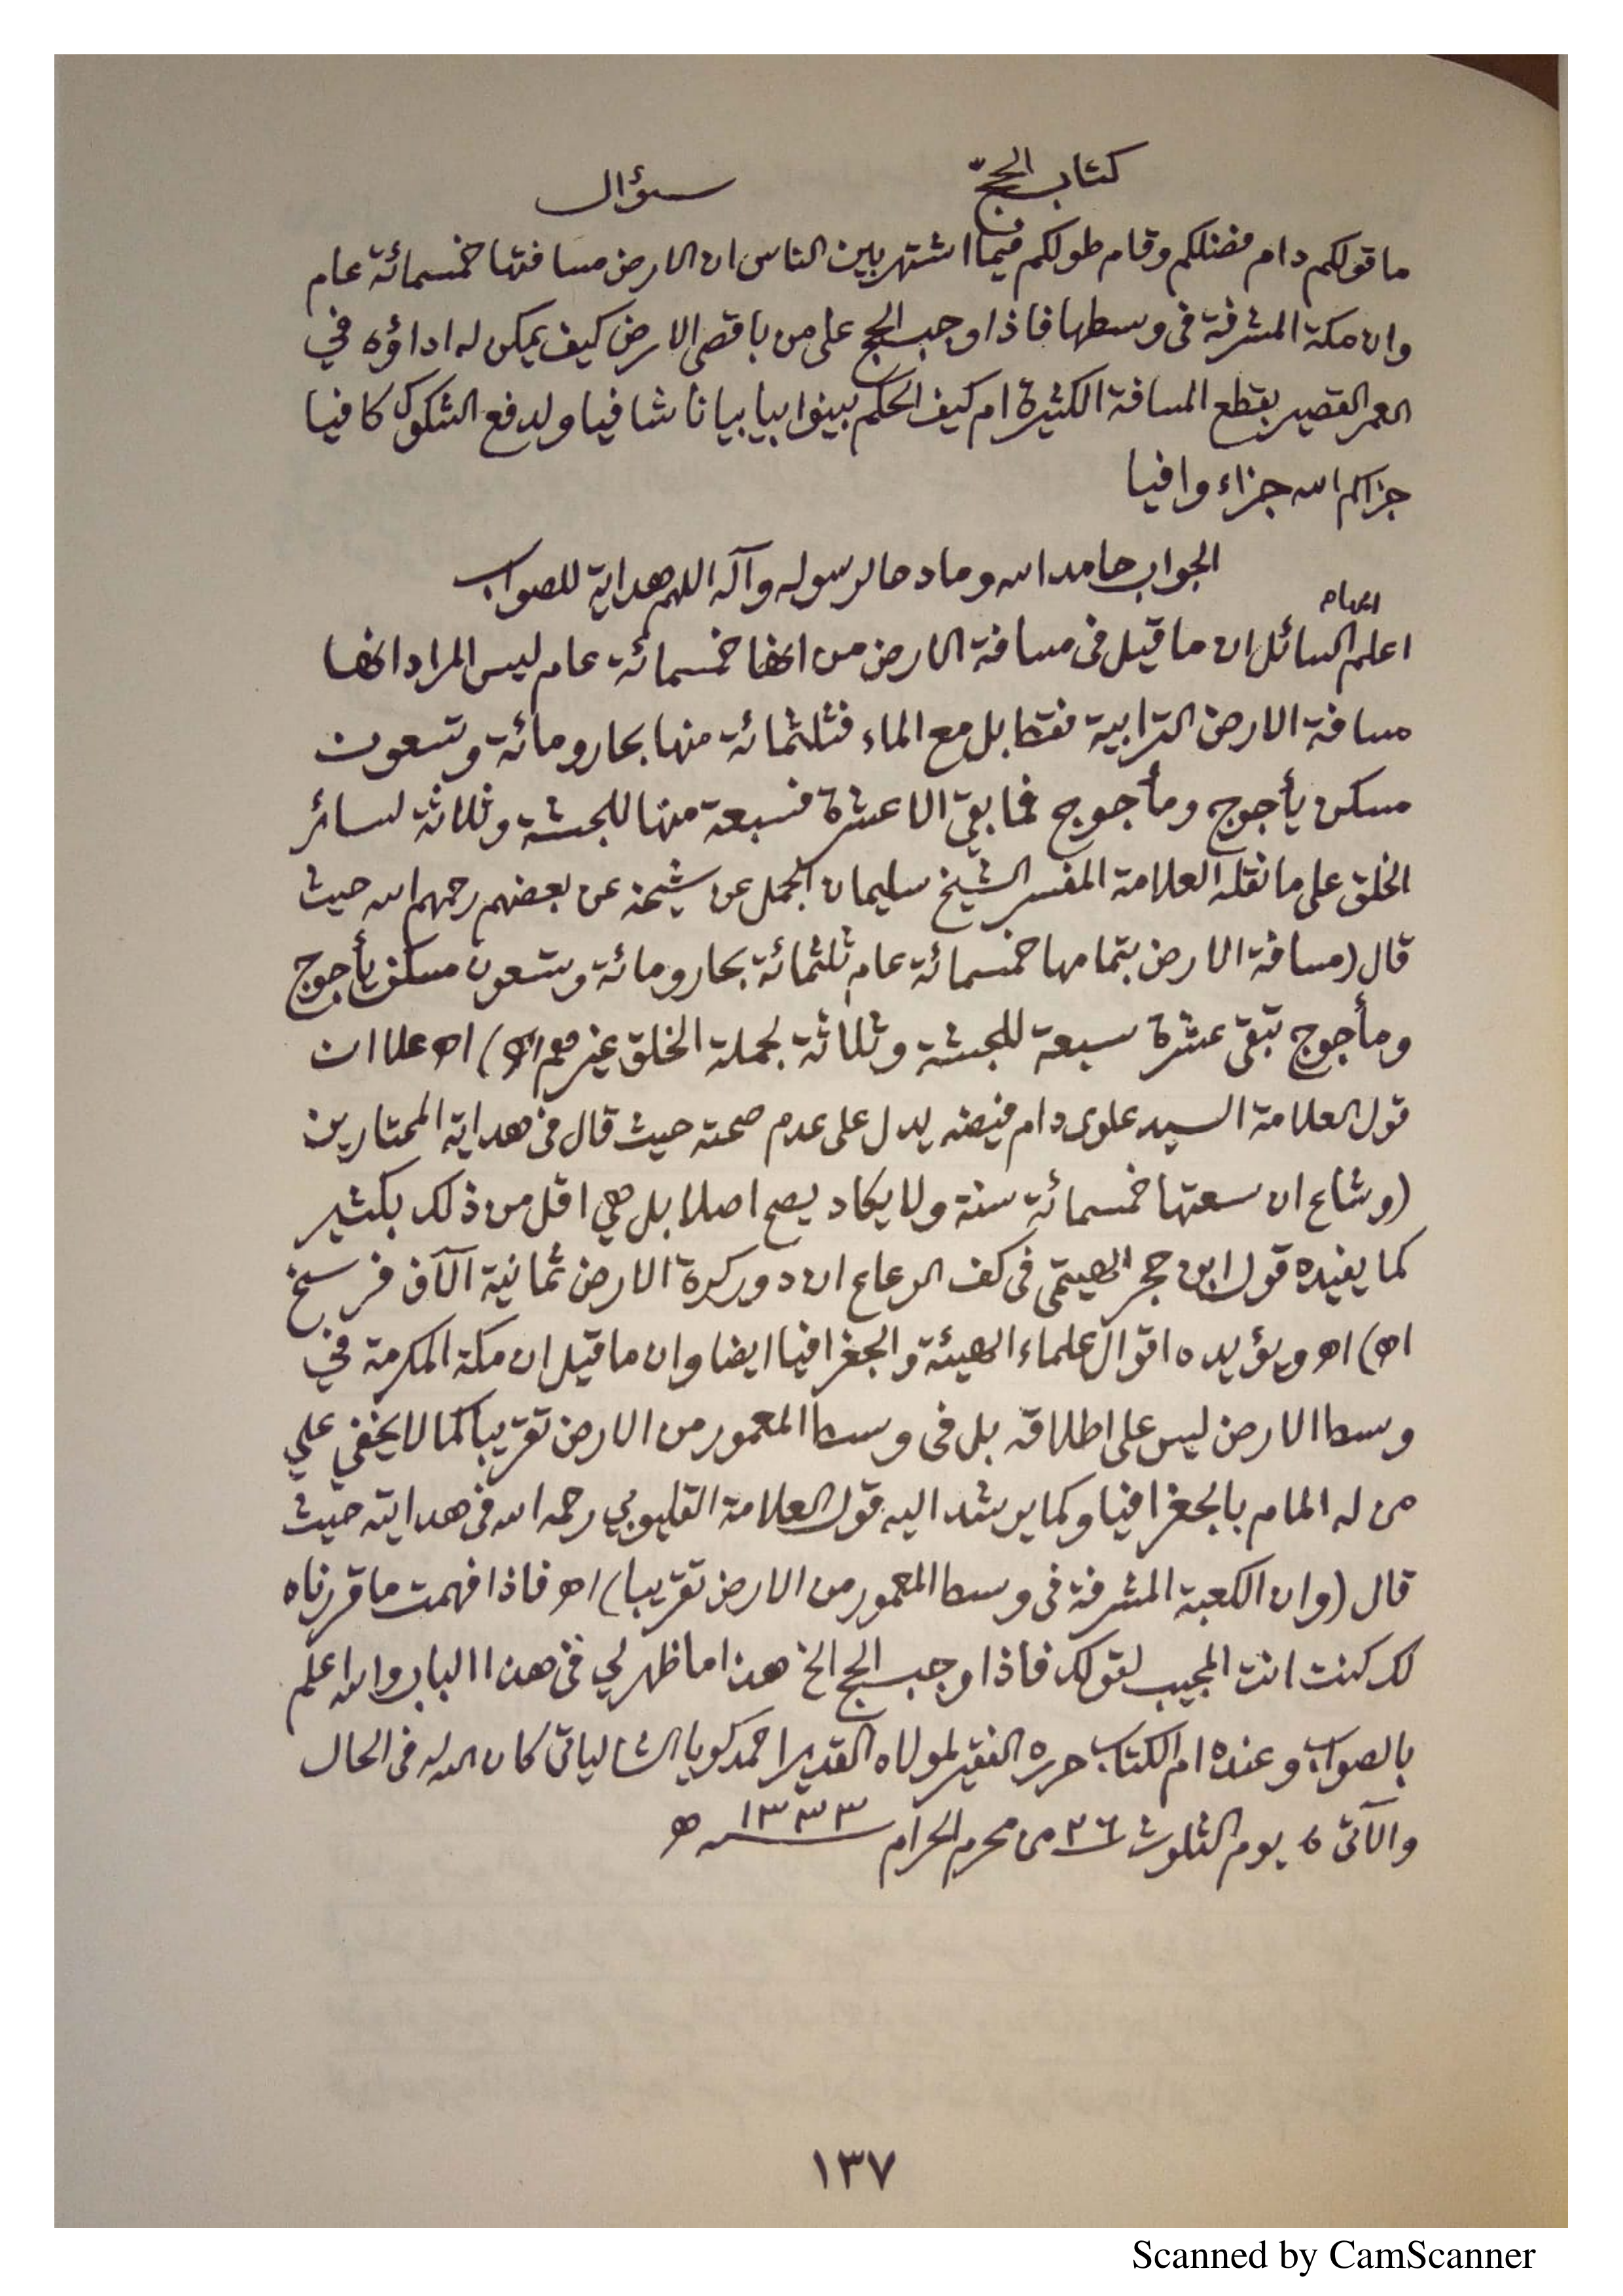 كتاب الحجّ سؤال
ما قولكم دام فضلكم وقام طولكم فيما اشتهر بين الناس ان الارض مسافتها خمسمائة عام
وان مكة المشرفة فى وسطها فاذا وجب الحج على من باقصى الارض كيف يمكن له اداؤه في
العمر القصير بقطع المسافة الكثيرة ام كيف الحكم بينوا بيا بيانا شافيا ولدفع الشكوك كافيا
جزاكم الله جزاء وافيا
الجواب حامدا لله ومادحا لرسوله وآله اللهم هداية للصواب
اعلم ايها السائل ان ما قيل فى مسافة الارض من انها خمسمائة عام ليس المراد انها
مسافة الارض الترابية فقط بل مع الماء فثلثمائة منها بحار ومائة وتسعون
مسكن يأجوج ومأجوج فما بقي الا عشرة فسبعة منها للحبشة وثلاثة لسائر
الخلق على ما نقله العلامة المفسر الشيخ سليمان الجمل عن شيخه عن بعضهم رحمهم الله حيث
قال (مسافة الارض بتمامها خمسمائة عام ثلثمائة بحار ومائة وتسعون مسكن يأجوج
ومأجوج تبقى عشرة سبعة للحبشة وثلاثة لجملة الخلق غيرهم اه) اه علا ان
قول العلامة السيد علوى دام فيضه يدل على عدم صحته حيث قال فى هداية المحتارين
(وشاع ان سعتها خمسمائة سنة ولا يكاد يصح اصلا بل هي اقل من ذلك بكثير
كما يفيده قول ابن حجر الهيتمى فى كف الرعاع ان دور كرة الارض ثمانية آلاف فرسخ
اه) اه ويؤيده اقوال علماء الهيئة والجغرافيا ايضا وان ما قيل ان مكة المكرمة في
وسط الارض ليس على اطلاقه بل فى وسط المعمور من الارض تقريبا كما لا يخفي علي
من له المام بالجغرافيا وكما يرشد اليه قول العلامة القليوبي رحمه الله فى هدايته حيث
قال (وان الكعبة المشرفة فى وسط المعمور من الارض تقريبا) اه فاذا فهمت ما قررناه
لك كنت انت المجيب لقولك فاذا وجب الحج الخ هذا ما ظهر لي فى هذا الباب والله اعلم
بالصواب وعنده ام الكتاب حرره الفقير لمولاه القدير احمد كويا الشالياتى كان الله له فى الحال
والآتى ٥ يوم الثلوث ٢٦ من محرم الحرام ١٣٣٣ ه
١٣٧
Scanned by CamScanner